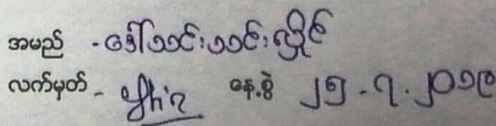 အမည် - ဒေါ်သင်းသင်းလှိုင်
လက်မှတ် - နေ့စွဲ ၂၅.၇.၂၀၁၉